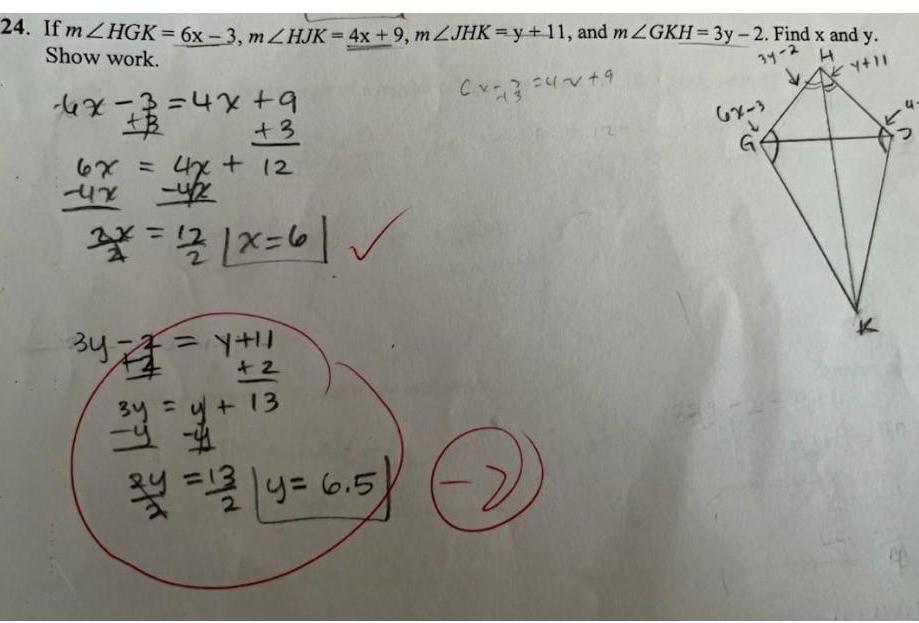 24. If m∠HGK = 6x – 3, m∠HJK = 4x + 9, m∠JHK = y + 11, and m∠GKH = 3y – 2. Find x and y.
Show work.
6x - 3 = 4x + 9
+3 +3
6x = 4x + 12
-4x -4x
2x/2 = 12/2 x=6 ✓
3y - 2 = y+11
+2 +2
3y = y + 13
-y -y
2y/2 = 13/2 y= 6.5
6x - 3 = 4x + 9
+3
12
3y-2 H y+11
6x-3 4
G J
K